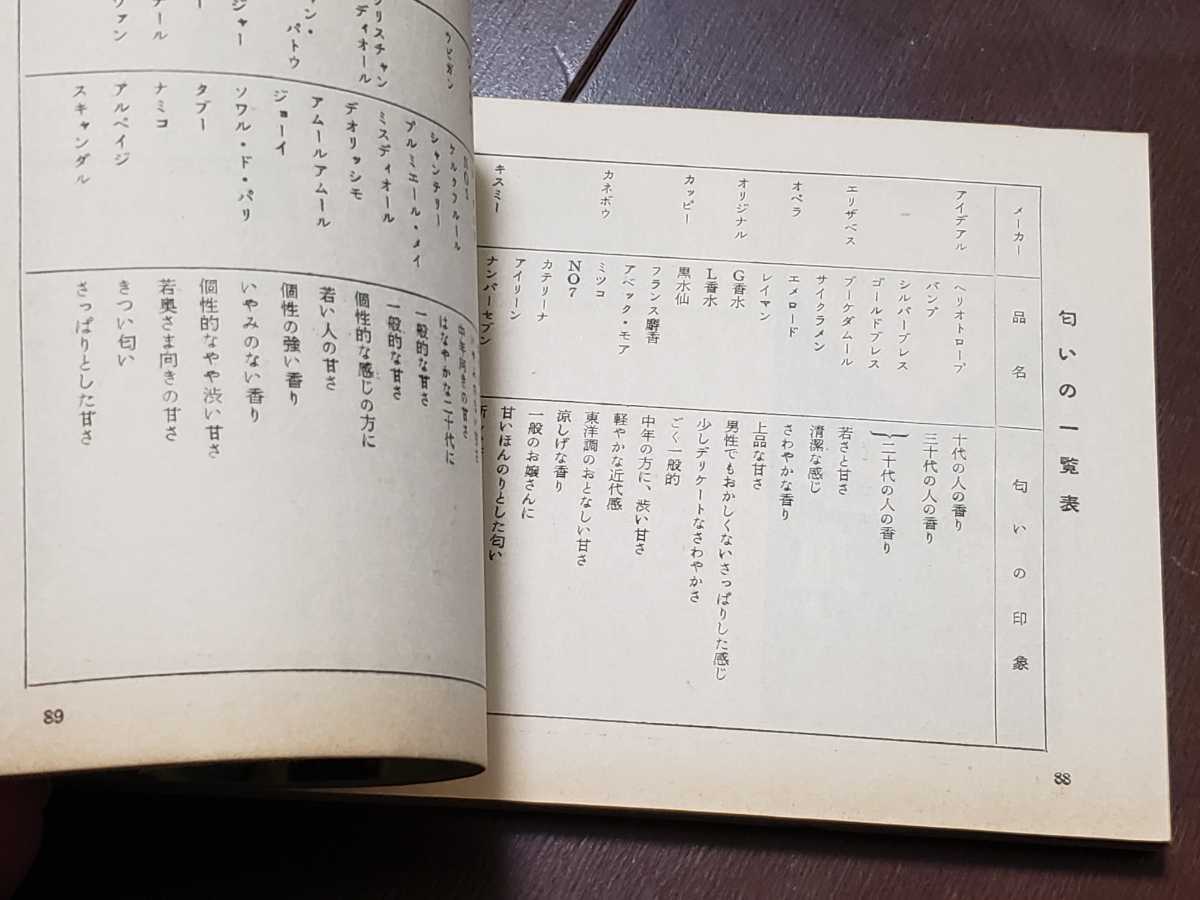 匂いの一覧表
メーカー
品名
匂いの印象
アイデアル
エリザベス
オペラ
オリジナル
カッピー
カネボウ
キスミー
ヘリオトロープ
バンプ
シルバーブレス
ゴールドブレス
ブーケダムール
サイクラメン
エメロード
レイマン
G香水
L香水
黒水仙
フランス麝香
アベック・モア
ミツコ
NO7
カテリーナ
アイリーン
ナンバーセブン
十代の人の香り
三十代の人の香り
二十代の人の香り
若さと甘さ
清潔な感じ
さわやかな香り
上品な甘さ
男性でもおかしくないさっぱりした感じ
少しデリケートなさわやかさ
ごく一般的
中年の方に、渋い甘さ
軽やかな近代感
東洋調のおとなしい甘さ
涼しげな香り
一般のお嬢さんに
甘いほんのりとした匂い
88
ウビガン
リスチャン
ディオール
パトウ
ケルクフルール
シャンテリー
プルミエール・メイ
ミスディオール
デオリッシモ
アムールアムール
ジョーイ
ソワル・ド・パリ
タブー
ナミコ
アルペイジ
スキャンダル
中年向きの甘さ
はなやかな二十代に
一般的な甘さ
一般的な甘さ
個性的な感じの方に
若い人の甘さ
個性の強い香り
いやみのない香り
個性的なやや渋い甘さ
若奥さま向きの甘さ
きつい匂い
さっぱりとした甘さ
89